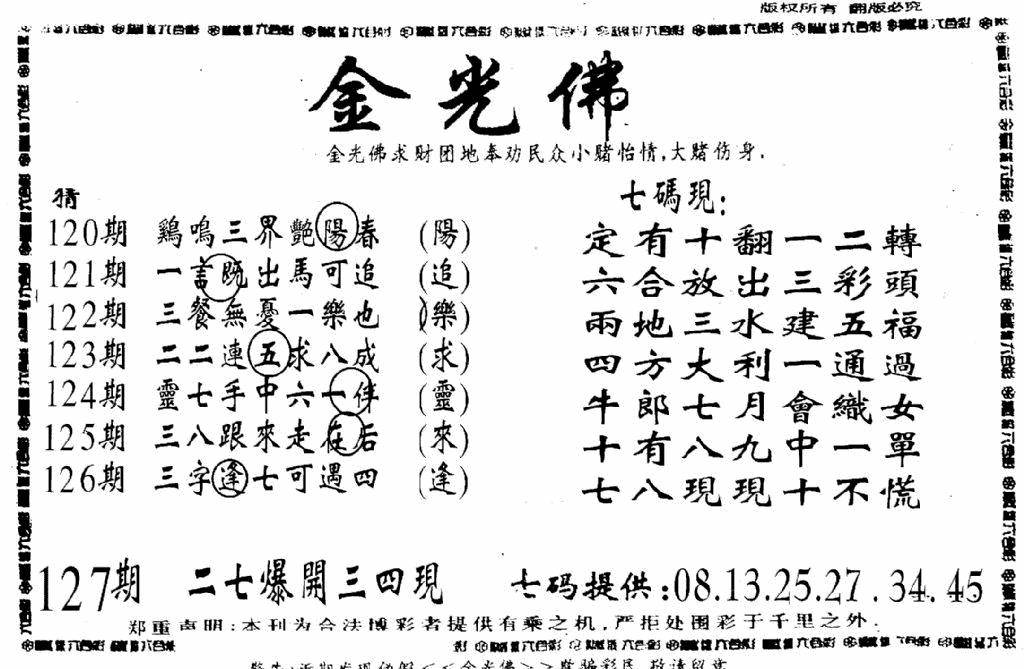 版权所有 翻版必究
金光佛
金光佛求财团地奉劝民众小赌怡情,大赌伤身.
猜
120期 鷄鳴三界艷陽春 (陽)
121期 一言既出馬可追 (追)
122期 三餐無憂一樂也 (樂)
123期 二二連五求八成 (求)
124期 靈七手中六一伴 (靈)
125期 三八跟來走在后 (來)
126期 三字逢七可遇四 (逢)
七碼現:
定有十翻一二轉
六合放出三彩頭
兩地三水建五福
四方大利一通過
牛郎七月會織女
十有八九中一單
七八現現十不慌
127期 二七爆開三四現 七码提供:08.13.25.27.34.45
郑重声明:本刊为合法博彩者提供有乘之机,严拒处围彩于千里之外.
警告:近期发现伪假<<金光佛>>欺骗彩民,敬请留意